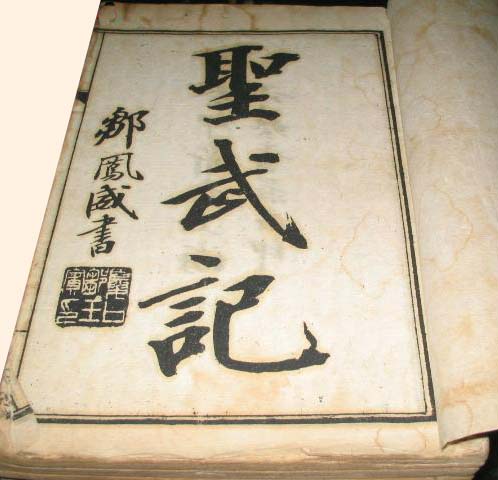 聖武記
鄒鳳威書